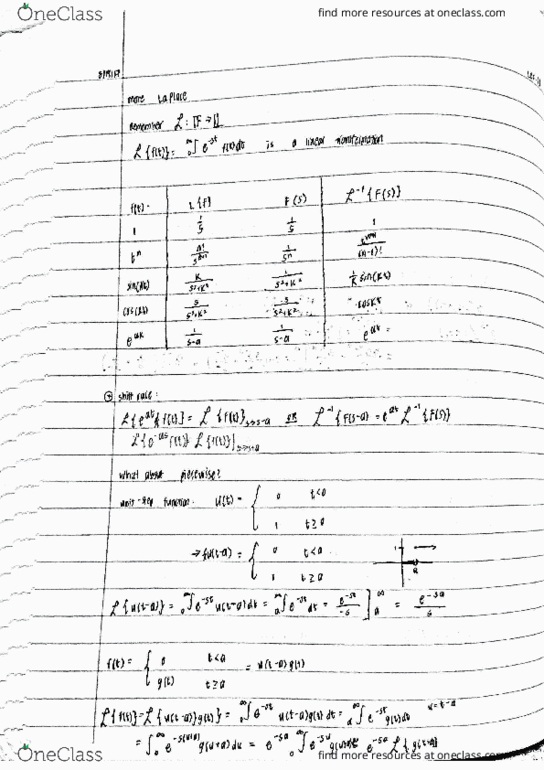 OneClass find more resources at oneclass.com
more Laplace
Remember ℒ: [F → []
ℒ{f(t)} = ₀∫^∞ e^-st f(t)dt is a linear transformation
f(t) L{f} F(s) ℒ^-1{F(s)}
1 1/s 1/s 1
t^n n!/s^n+1 1/s^n t^n-1/(n-1)!
sin(kt) k/s²+k² 1/s²+k² 1/k sin(kt)
cos(kt) s/s²+k² s/s²+k² cos kt
1/s-a 1/s-a e^at
shift rule:
ℒ{e^at f(t)} = ℒ{f(t)}s→s-a OR ℒ^-1{F(s-a)} = e^at ℒ^-1{F(s)}
what about piecewise?
unit-step function. U(t) = { 0 t<0
1 t≥0
→ u(t-a) = { 0 t<a
1 t≥a
ℒ{u(t-a)} = ₀∫^∞ e^-st u(t-a)dt = ₐ∫^∞ e^-st dt = e^-st/-s ]ₐ^∞ = e^-sa/s
f(t) = { 0 t<a = u(t-a)g(t)
g(t) t≥a
ℒ{f(t)} = ℒ{u(t-a)g(t)} = ₀∫^∞ e^-st u(t-a)g(t)dt = ₐ∫^∞ e^-st g(t)dt u=t-a
= ∫₀^∞ e^-s(u+a) g(u+a)du = e^-sa ₀∫^∞ e^-su g(u+a) e^-sa ℒ{g(t+a)}
OneClass find more resources at oneclass.com